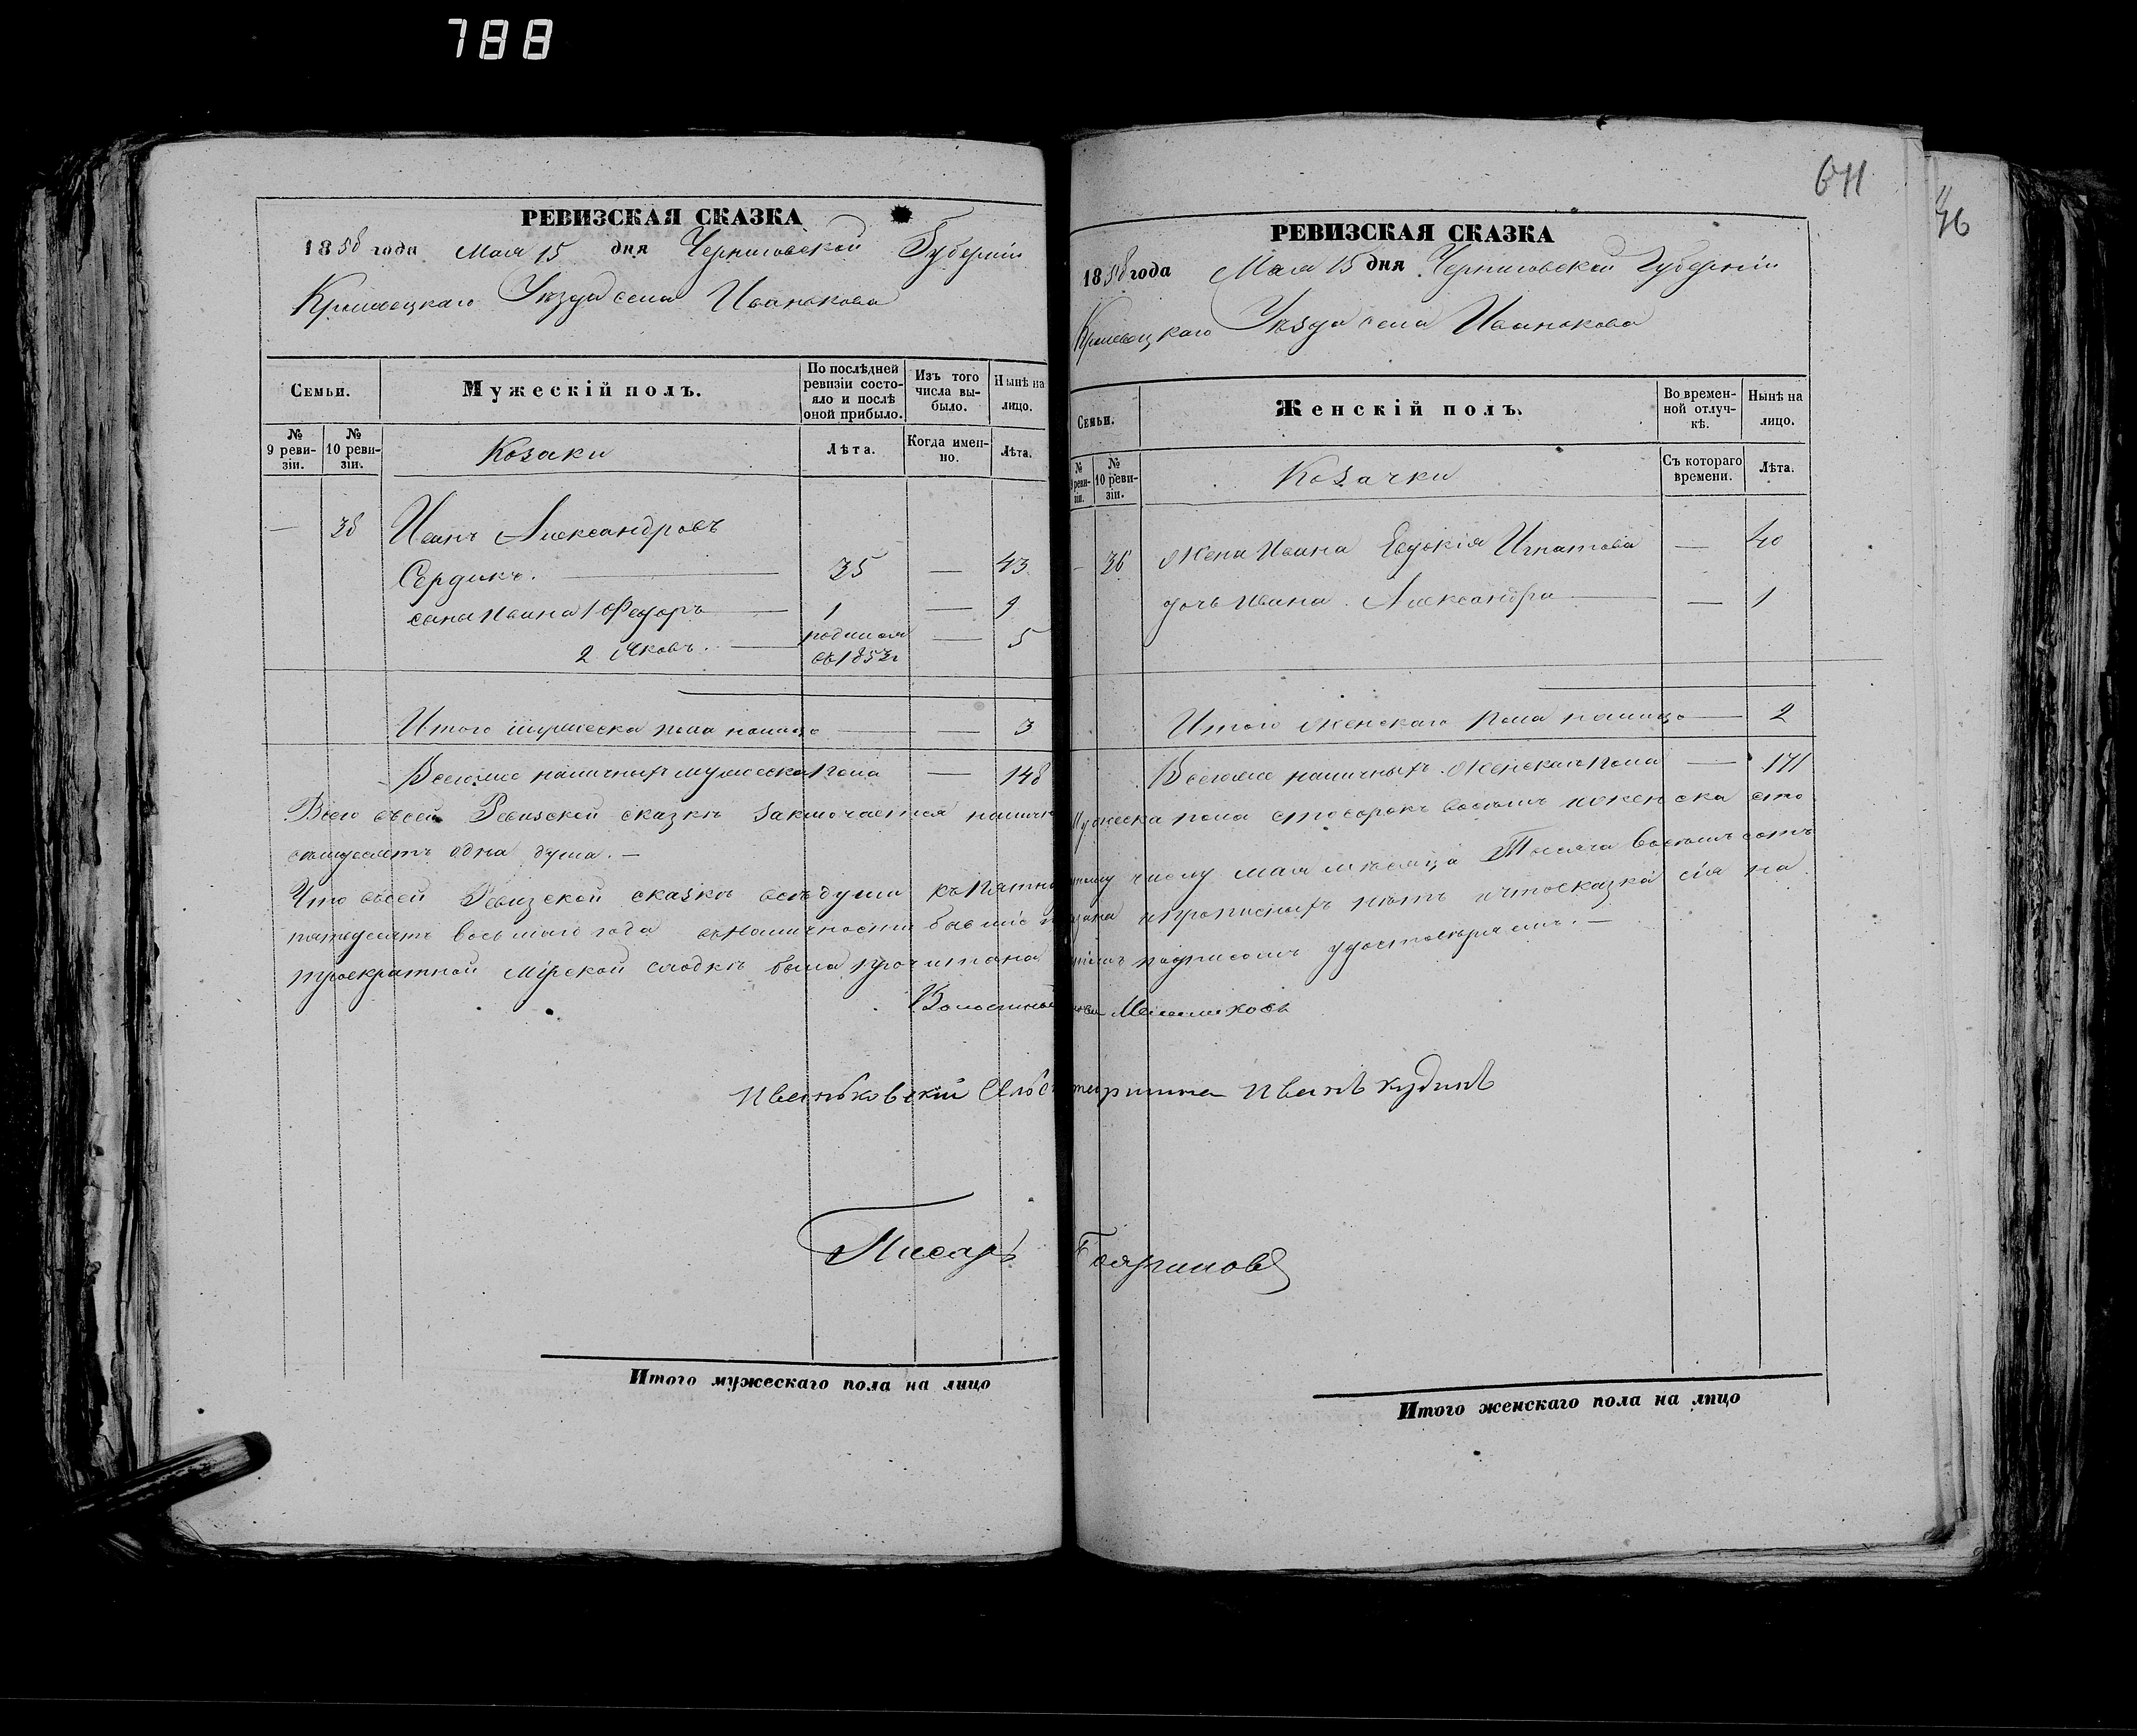 788
671
46
РЕВИЗСКАЯ СКАЗКА
1858 года Мая 15 дня Черниговской Губерніи
Кролевецкаго Уѣзда села Иванькова
Семьи.
Мужескій полъ.
По послѣдней ревизіи состояло и послѣ оной прибыло.
Изъ того числа выбыло.
Нынѣ на лицо.
№ 9 ревизіи.
№ 10 ревизіи.
Козаки
Лѣта.
Когда именно.
Лѣта.
— 38 Иванъ Александровъ
Сердикъ. — 35 — 43
сыны Ивана 1 Федоръ — 1 — 9
2 Яковъ. — родился въ 1853 г — 5
Итого мужеска пола налицо — — 3
Всего же наличныхъ мужеска пола — 148
РЕВИЗСКАЯ СКАЗКА
1858 года Мая 15 дня Черниговской Губерніи
Кролевецкаго Уѣзда села Иванькова
Семьи.
Женскій полъ.
Во временной отлучкѣ.
Нынѣ на лицо.
№ 9 ревизіи.
№ 10 ревизіи.
Козачки
Съ котораго времени.
Лѣта.
— 38 Жена Ивана Евдокія Игнатова — 40
дочь Ивана Александра — — 1
Итого женскаго пола налицо — 2
Всего же наличныхъ женскаго пола — 171
Всего въ сей Ревизской сказкѣ заключается налично мужеска пола сто сорокъ восемь и женска сто
семдесятъ одна душа. —
Что въ сей Ревизской сказкѣ всѣ души къ пятнадцатому числу мая мѣсяца Тысяча восемь сотъ
пятдесятъ восьмаго года въ наличности бывшіе и прописныхъ нѣтъ и что сказка сія на
троекратной мірской сходкѣ была прочитана подписомъ удостовѣряемъ. —
Волостной Голова
Иваньковскій Сельс старшина Иванъ Кудинъ
Писарь Бояриновъ
Итого мужескаго пола на лицо
Итого женскаго пола на лицо